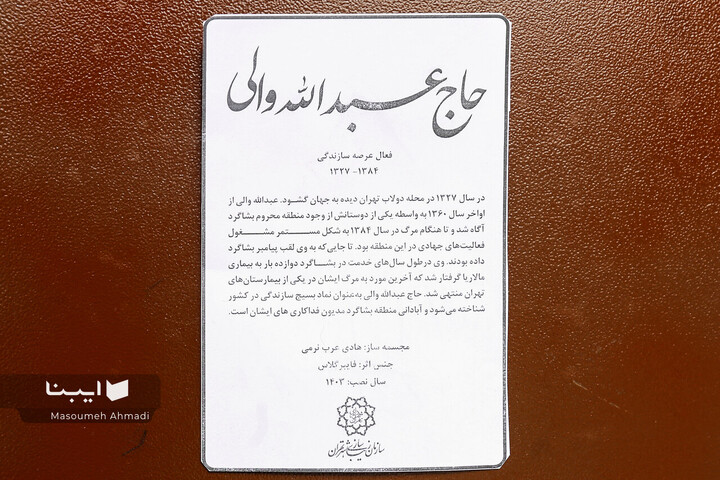 حاج عبدالله والی
فعال عرصه سازندگی
۱۳۲۷- ۱۳۸۴
در سال ۱۳۲۷ در محله دولاب تهران دیده به جهان گشود. عبدالله والی از
اواخر سال ۱۳۶۰ به واسطه یکی از دوستانش از وجود منطقه محروم بشاگرد
آگاه شد و تا هنگام مرگ در سال ۱۳۸۴ به شکل مستمر مشغول
فعالیت‌های جهادی در این منطقه بود. تا جایی‌که به وی لقب پیامبر بشاگرد
داده بودند. وی درطول سال‌های خدمت در بشاگرد دوازده بار به بیماری
مالاریا گرفتار شد که آخرین مورد به مرگ ایشان در یکی از بیمارستان‌های
تهران منتهی شد. حاج عبدالله والی به‌عنوان نماد بسیج سازندگی در کشور
شناخته می‌شود و آبادانی منطقه بشاگرد مدیون فداکاری های ایشان است.
مجسمه ساز: هادی عرب نرمی
جنس اثر: فایبرگلاس
سال نصب: ۱۴۰۳
سازمان زیباسازی شهر تهران
ایبنا
Masoumeh Ahmadi